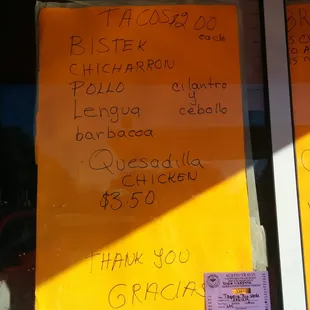 TACOS $2.00
each
BISTEK
CHICHARRON
POLLO cilantro
y
Lengua cebollo
barbacoa
Quesadilla
CHICKEN
$3.50
THANK YOU
GRACIAS